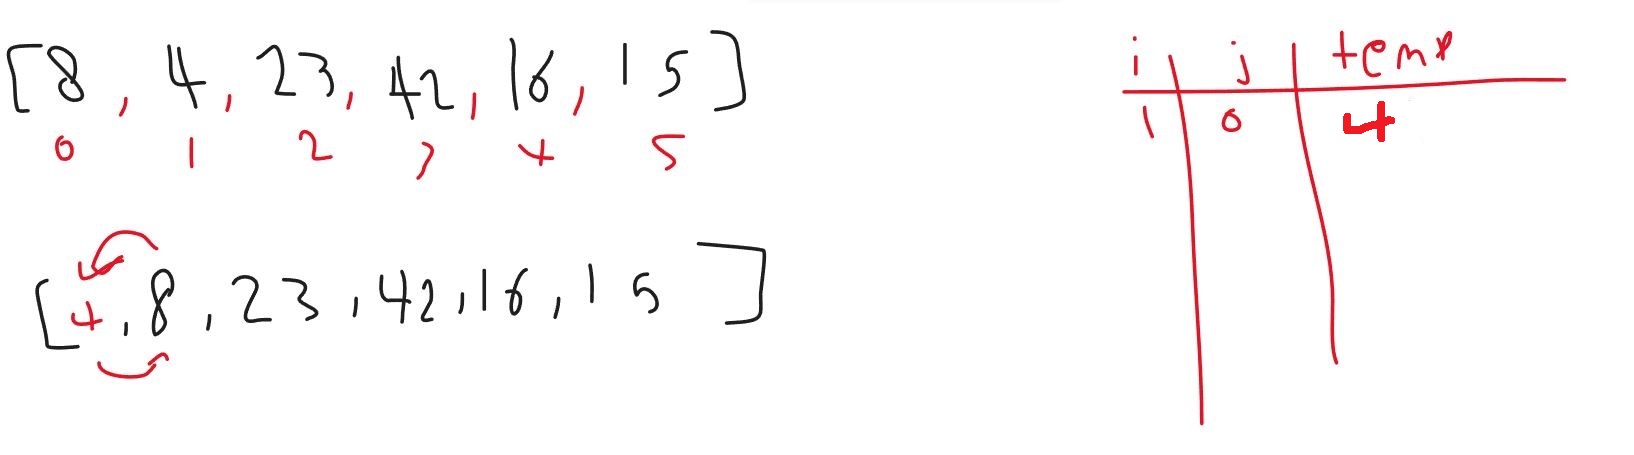 [8, 4, 23, 42, 16, 15]
0 1 2 3 4 5
[4, 8, 23, 42, 16, 15]
i j temp
1 0 4